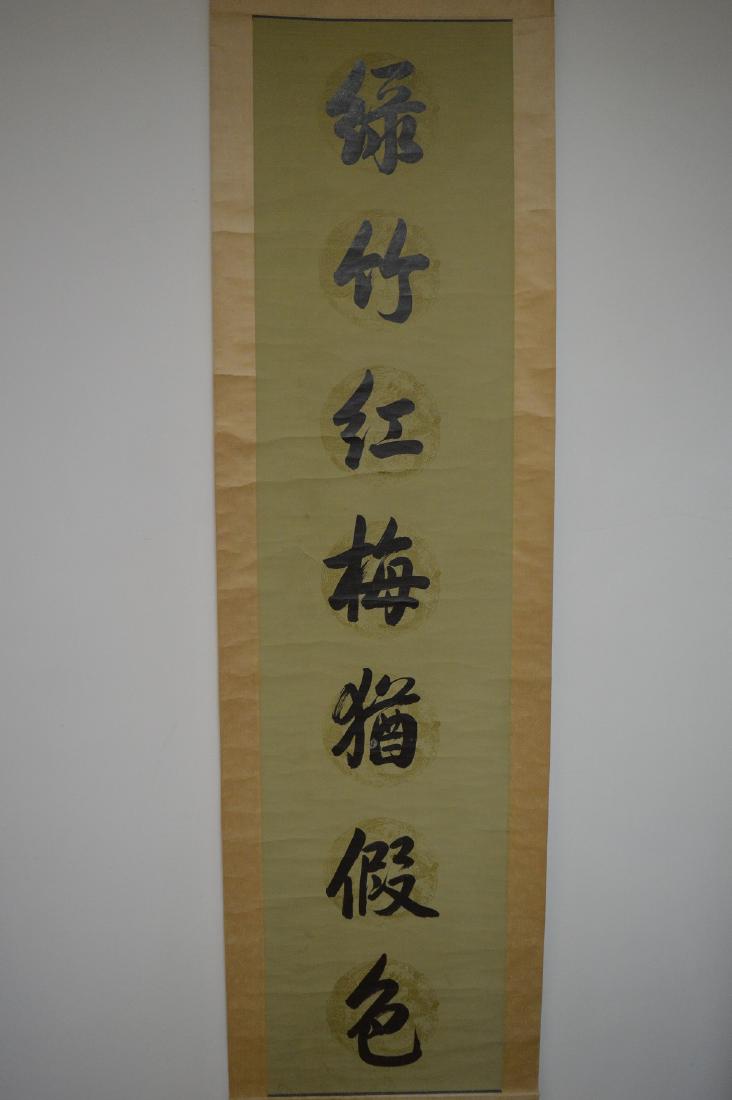 绿竹红梅猶假色